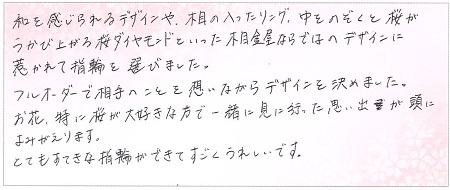 和を感じられるデザインや、木目の入ったリング、中をのぞくと桜が
うかび上がる桜ダイヤモンドといった杢目金屋ならではのデザインに
惹かれて指輪を選びました。
フルオーダーで相手のことを想いながらデザインを決めました。
お花、特に桜が大好きな方で一緒に見に行った思い出が頭に
よみがえります。
とてもすてきな指輪ができてすごくうれしいです。